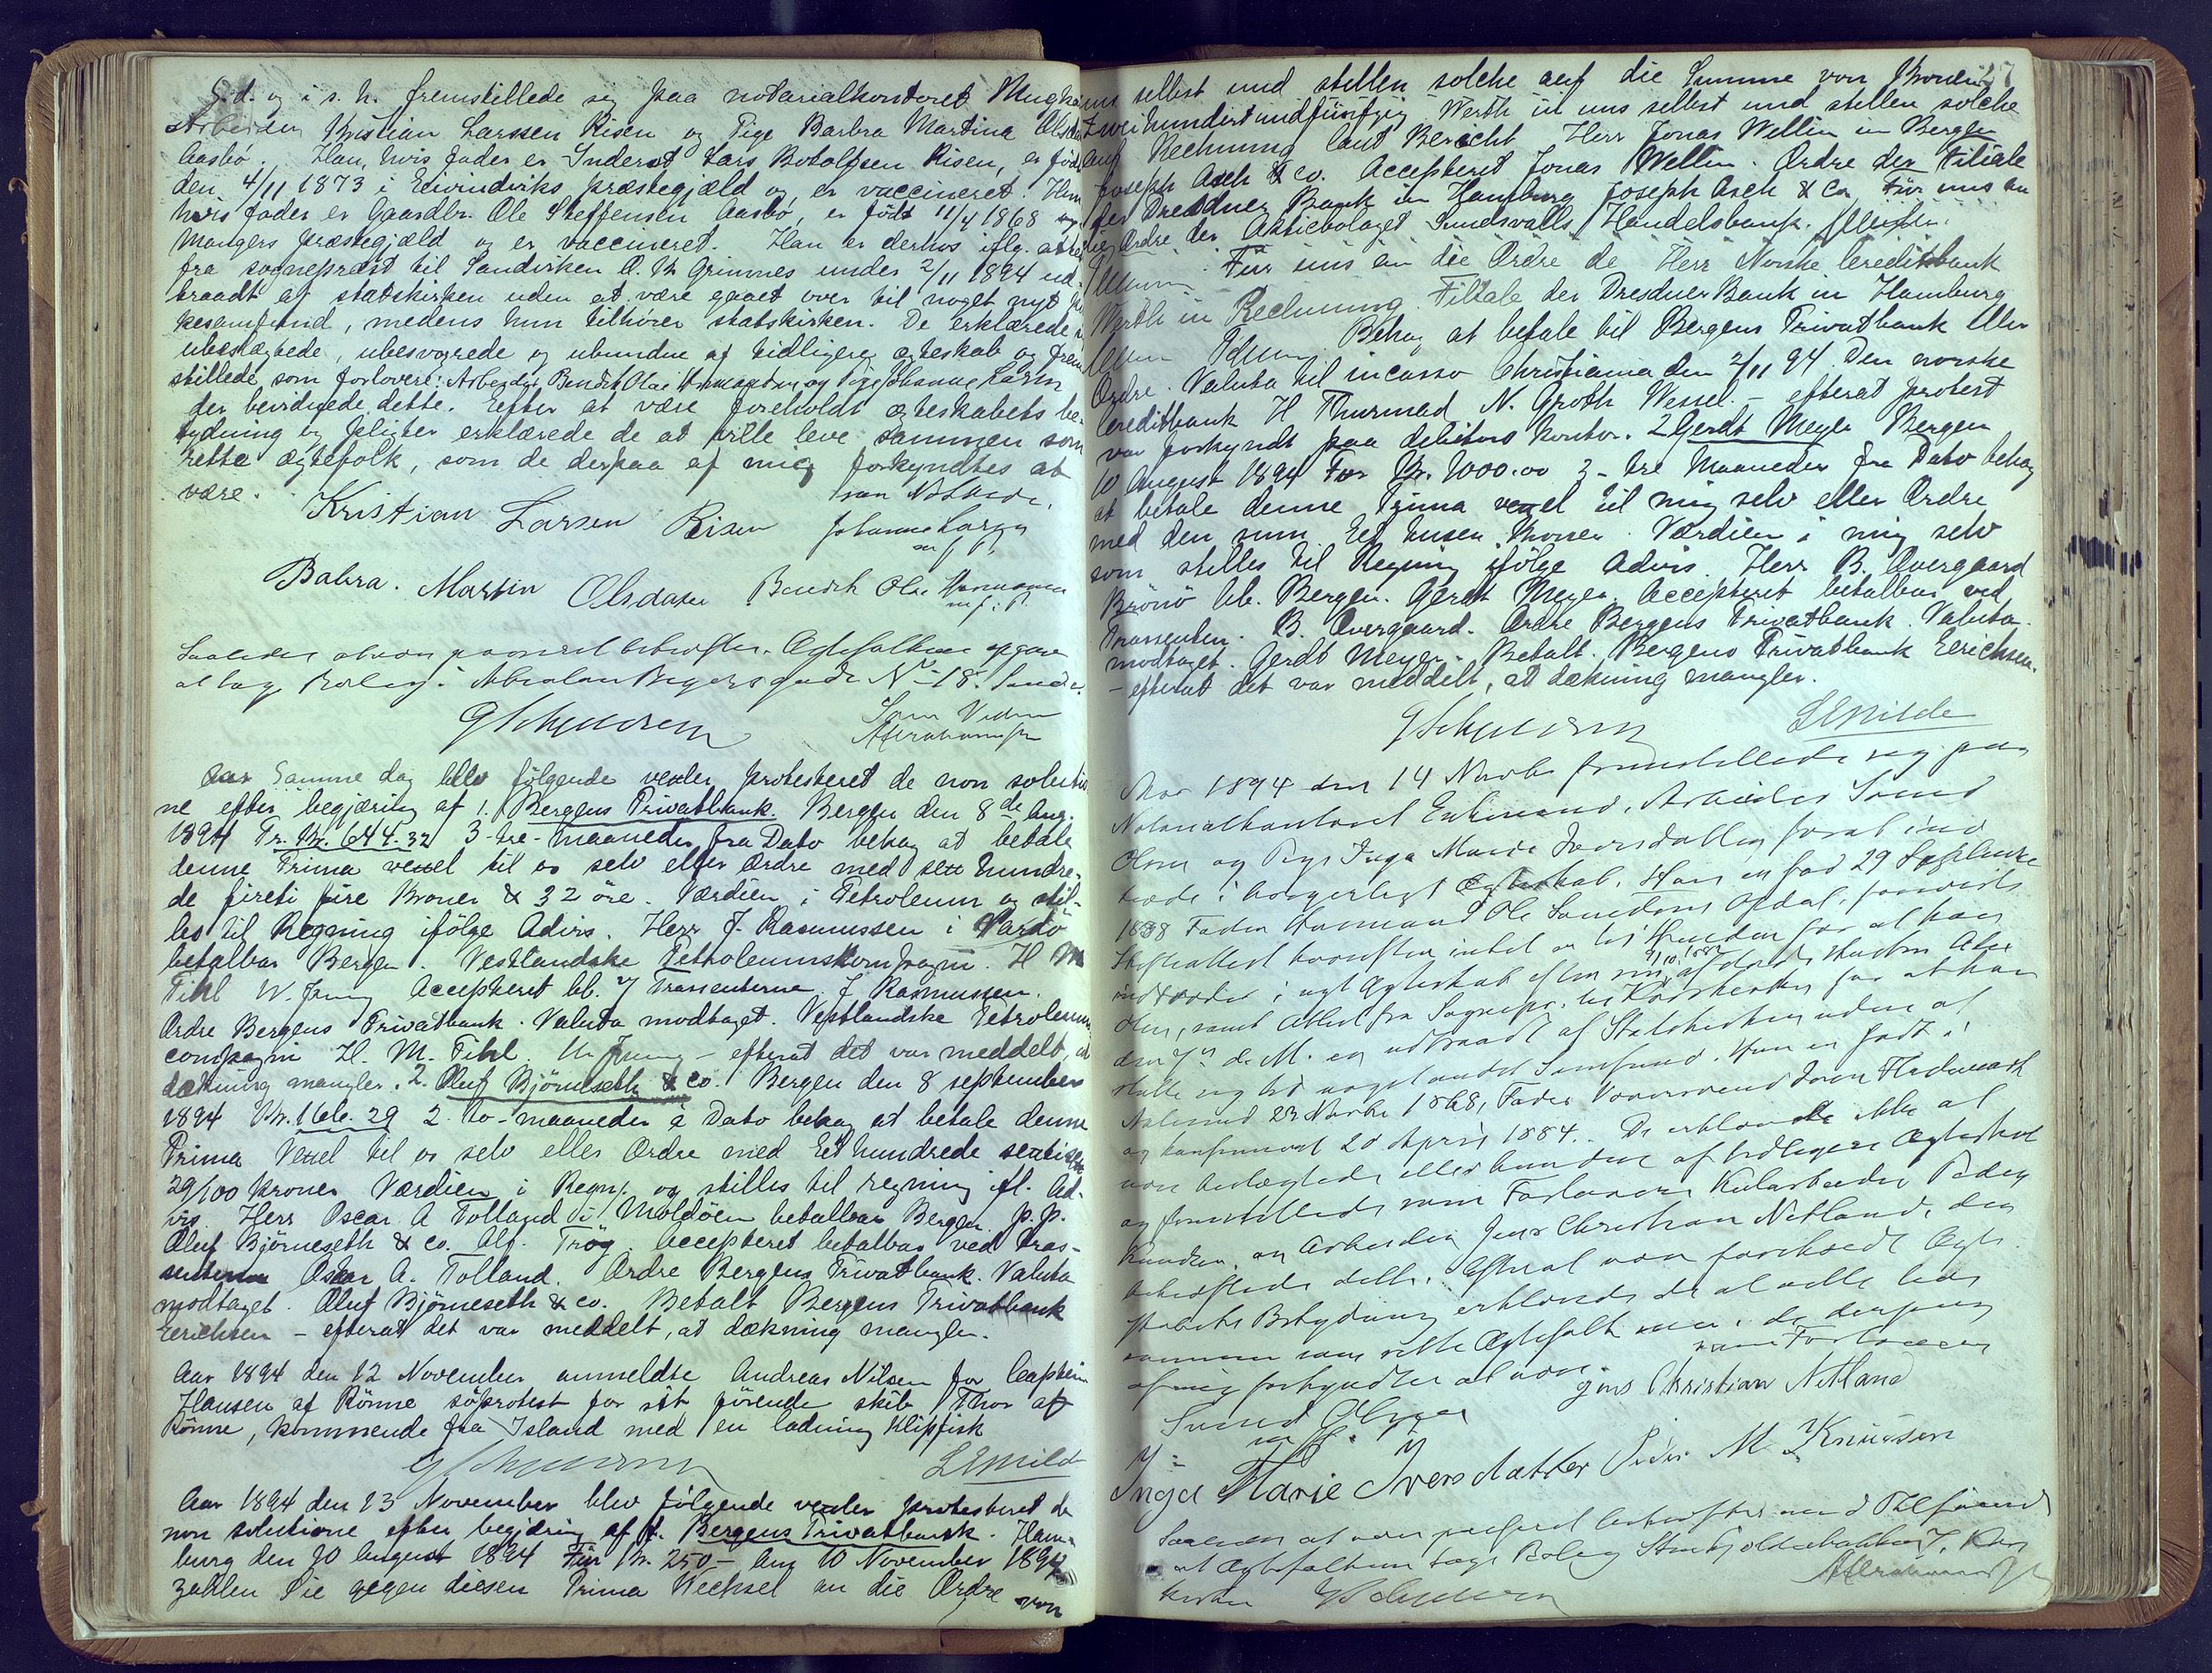 S. d. og i s. h. fremstillede sig paa notarialkontoret
Arbeider Kristian Larssen Risen og Pige Barbra Martina
Aasbö. Han, hvis fader er Inderst Lars Botolfsen Risen, er född
den 4/11 1873 i Eivindviks præstegjæld og er vaccineret. Hun
hvis fader er Gaardbr. Ole Steffensen Aasbö, er født 11/4 1868
Mangers præstegjæld og er vaccineret. Han er derhos iflg. attest
fra sognepræst til Sandviken O. W. Grimnes under 2/11 1894 ud-
traadt af statskirken uden at være gaaet over til noget nyt
kesamfund, medens hun tilhører statskirken. De erklærede
ubeslægtede, ubesvogrede og ubundne af tidligere ægteskab og frem-
stillede som forlovere: Arbeider Bendik Olai Hermansen og Pige Johanne Larsen
der bevidnede dette. Eefter at være foreholdt ægteskabets be-
tydning og pligter erklærede de at ville leve sammen som
rette ægtefolk, som de derpaa af mig forkyndtes at
være.
Kristian Larsen Risen Johanne Larsen
m. f. P.
Babra. Martin Olsdater Bendik Olai Hermansen
m. f. P.
Saaledes at være passeret bekræftes. Ægtefolkene opgave
at tage Bolig i Abraham N 18.
Aar Samme dag blev følgende vexler protesteret de non solutio
ne efter begjæring af 1. Bergens Privatbank. Bergen den 8de Aug.
1894 Pr. Kr. 644.32 3-tre-maaneder fra Dato behag at betale
denne Prima vexel til os selv eller Ordre med sex hundre-
de fireti fire Kroner & 32 öre. Værdien i Petroleum og stil-
les til Regning ifølge Advis. Herr J. Rasmussen i Vardö
betalbar Bergen. Vestlandske Petroleumskompagni. H M
Fihl W. Jung Accepteret bb. 7 Trassenterne. J Rasmussen.
Ordre Bergens Privatbank. Valuta modtaget. Vestlandske Petroleums
compagni H. M. Fihl. W. Jung - efterat det var meddelt, at
dækning mangler. 2. Oluf Björneseth & Co. Bergen den 8 september
1894 Kr. 166.29 2. to-maaneder à Dato behag at betale denne
Prima Vexel til os selv eller Ordre med Et hundrede sextisex
29/100 Kroner Værdien i Regn. og stilles til regning ifl. Ad-
vis Herr Oscar A Tolland i Moldöen betalbar Bergen. p. p.
Oluf Björneseth & Co. Alf. Trög. Accepteret betalbar ved Tras-
senterne Oskar A. Tolland. Ordre Bergens Privatbank. Valuta
modtaget. Oluf Björneseth & Co. Betalt Bergens Privatbank
Eerichsen - efterat det var meddelt, at dækning mangler.
Aar 1894 den 12 November anmeldte Andreas Nilsen for Captein
Hansen af Rönne söprotest for sit förende skib Thor af
Rönne, kommende fra Island med en ladning Klipfisk
Aar 1894 den 13 November blev følgende vexler protesteret de
non solutione efter begjæring af 1. Bergens Privatbank. Ham-
burg den 10 August 1894 Für Kr. 250- Am 10 November 1894
zahlen Sie gegen diesen Prima Wechsel an die Ordre von
uns selbst und stellen solche auf die Summe von Kronen
Zweihundertundfünfzig Werth in uns selbst und stellen solche
auf Rechnung laut Bericht Herr Jonas Wellin in Bergen
Joseph Asch & Co. Accepteret Jonas Wellin. Ordre der Filiale
der Dresdner Bank in Hamburg Joseph Asch & Co. Für uns an
die Ordre der Aktiebolaget Sundsvalls Handelsbank.
Für uns an die Ordre de Herr Norske Creditbank
Werth in Rechnung. Filiale der Dresdner Bank in Hamburg
Behag at betale til Bergens Privatbank eller
Ordre. Valuta til incasso Christiania den 2/11 94. Den norske
Creditbank H Thurmad N. Groth Wessel. - efterat protest
var forkyndt paa debitors kontor. 2 Gerdt Meyer Bergen
10 August 1894 For Kr. 1000.00 3 - tre Maaneder fra Dato behag
at betale denne Prima vexel til mig selv eller Ordre
med den sum Et tusen Kroner. Værdien i mig selv
som stilles til Regning ifölge advis Herr B. Overgaard
Brönö bb. Bergen. Gerdt Meyer. Accepteret betalbar ved
Trassenten. B. Overgaard. Ordre Bergens Privatbank. Valuta
modtaget. Gerdt Meyer. Betalt. Bergens Privatbank Eerichsen.
- efterat det var meddelt, at dækning mangler.
Aar 1894 den 14 Novbr fremstillede sig paa
Notarialkontoret Enkemand, Arbeider Sivert
Olsen og Pige Inga Marie Iversdatter for at ind
træde i borgerligt Ægteskab. Han er fød 29 September
1838 Fader Husmand Ole
Skifteattest hvorefter intet er til Hinder for at han
indtræder i nyt Ægteskab efter sin afdøde Hustru
Olsen, samt Attest fra Sognepr. til Korskirken for at han
den 7de d. M. er udtraadt af Statskirken uden at
slutte sig til noget andet Samfund. Hun er født i
Aalesund 23 Novbr 1868, Fader Iver
og konfirmeret 20 April 1884. De erklærede ikke at
være beslægtede eller bundne af tidligere Ægteskab
og fremstillede som Forlovere Kularbeider Peder
Knudsen og Arbeider Jens Christian Netland, der
bekræftede dette. Efterat være foreholdt Ægte-
skabets Betydning erklærede de at ville leve
sammen som rette Ægtefolk, som de derpaa
af mig forkyndtes at være.
som Forlovere
Jens Christian Netland
Sivert Olsen
Inga Marie Iversdatter Peder M. Knudsen
Saaledes at være passeret bekræftes med Tilføiende
at Ægtefolkene tage Bolig